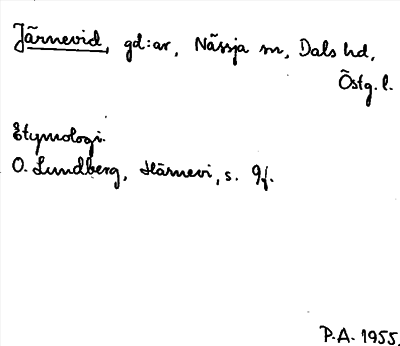 Järnevid, gd:ar, Nässja sn, Dals hd,
Östg. l.
Etymologi.
O. Lundberg, Härnevi, s. 9f.
P.A. 1955.